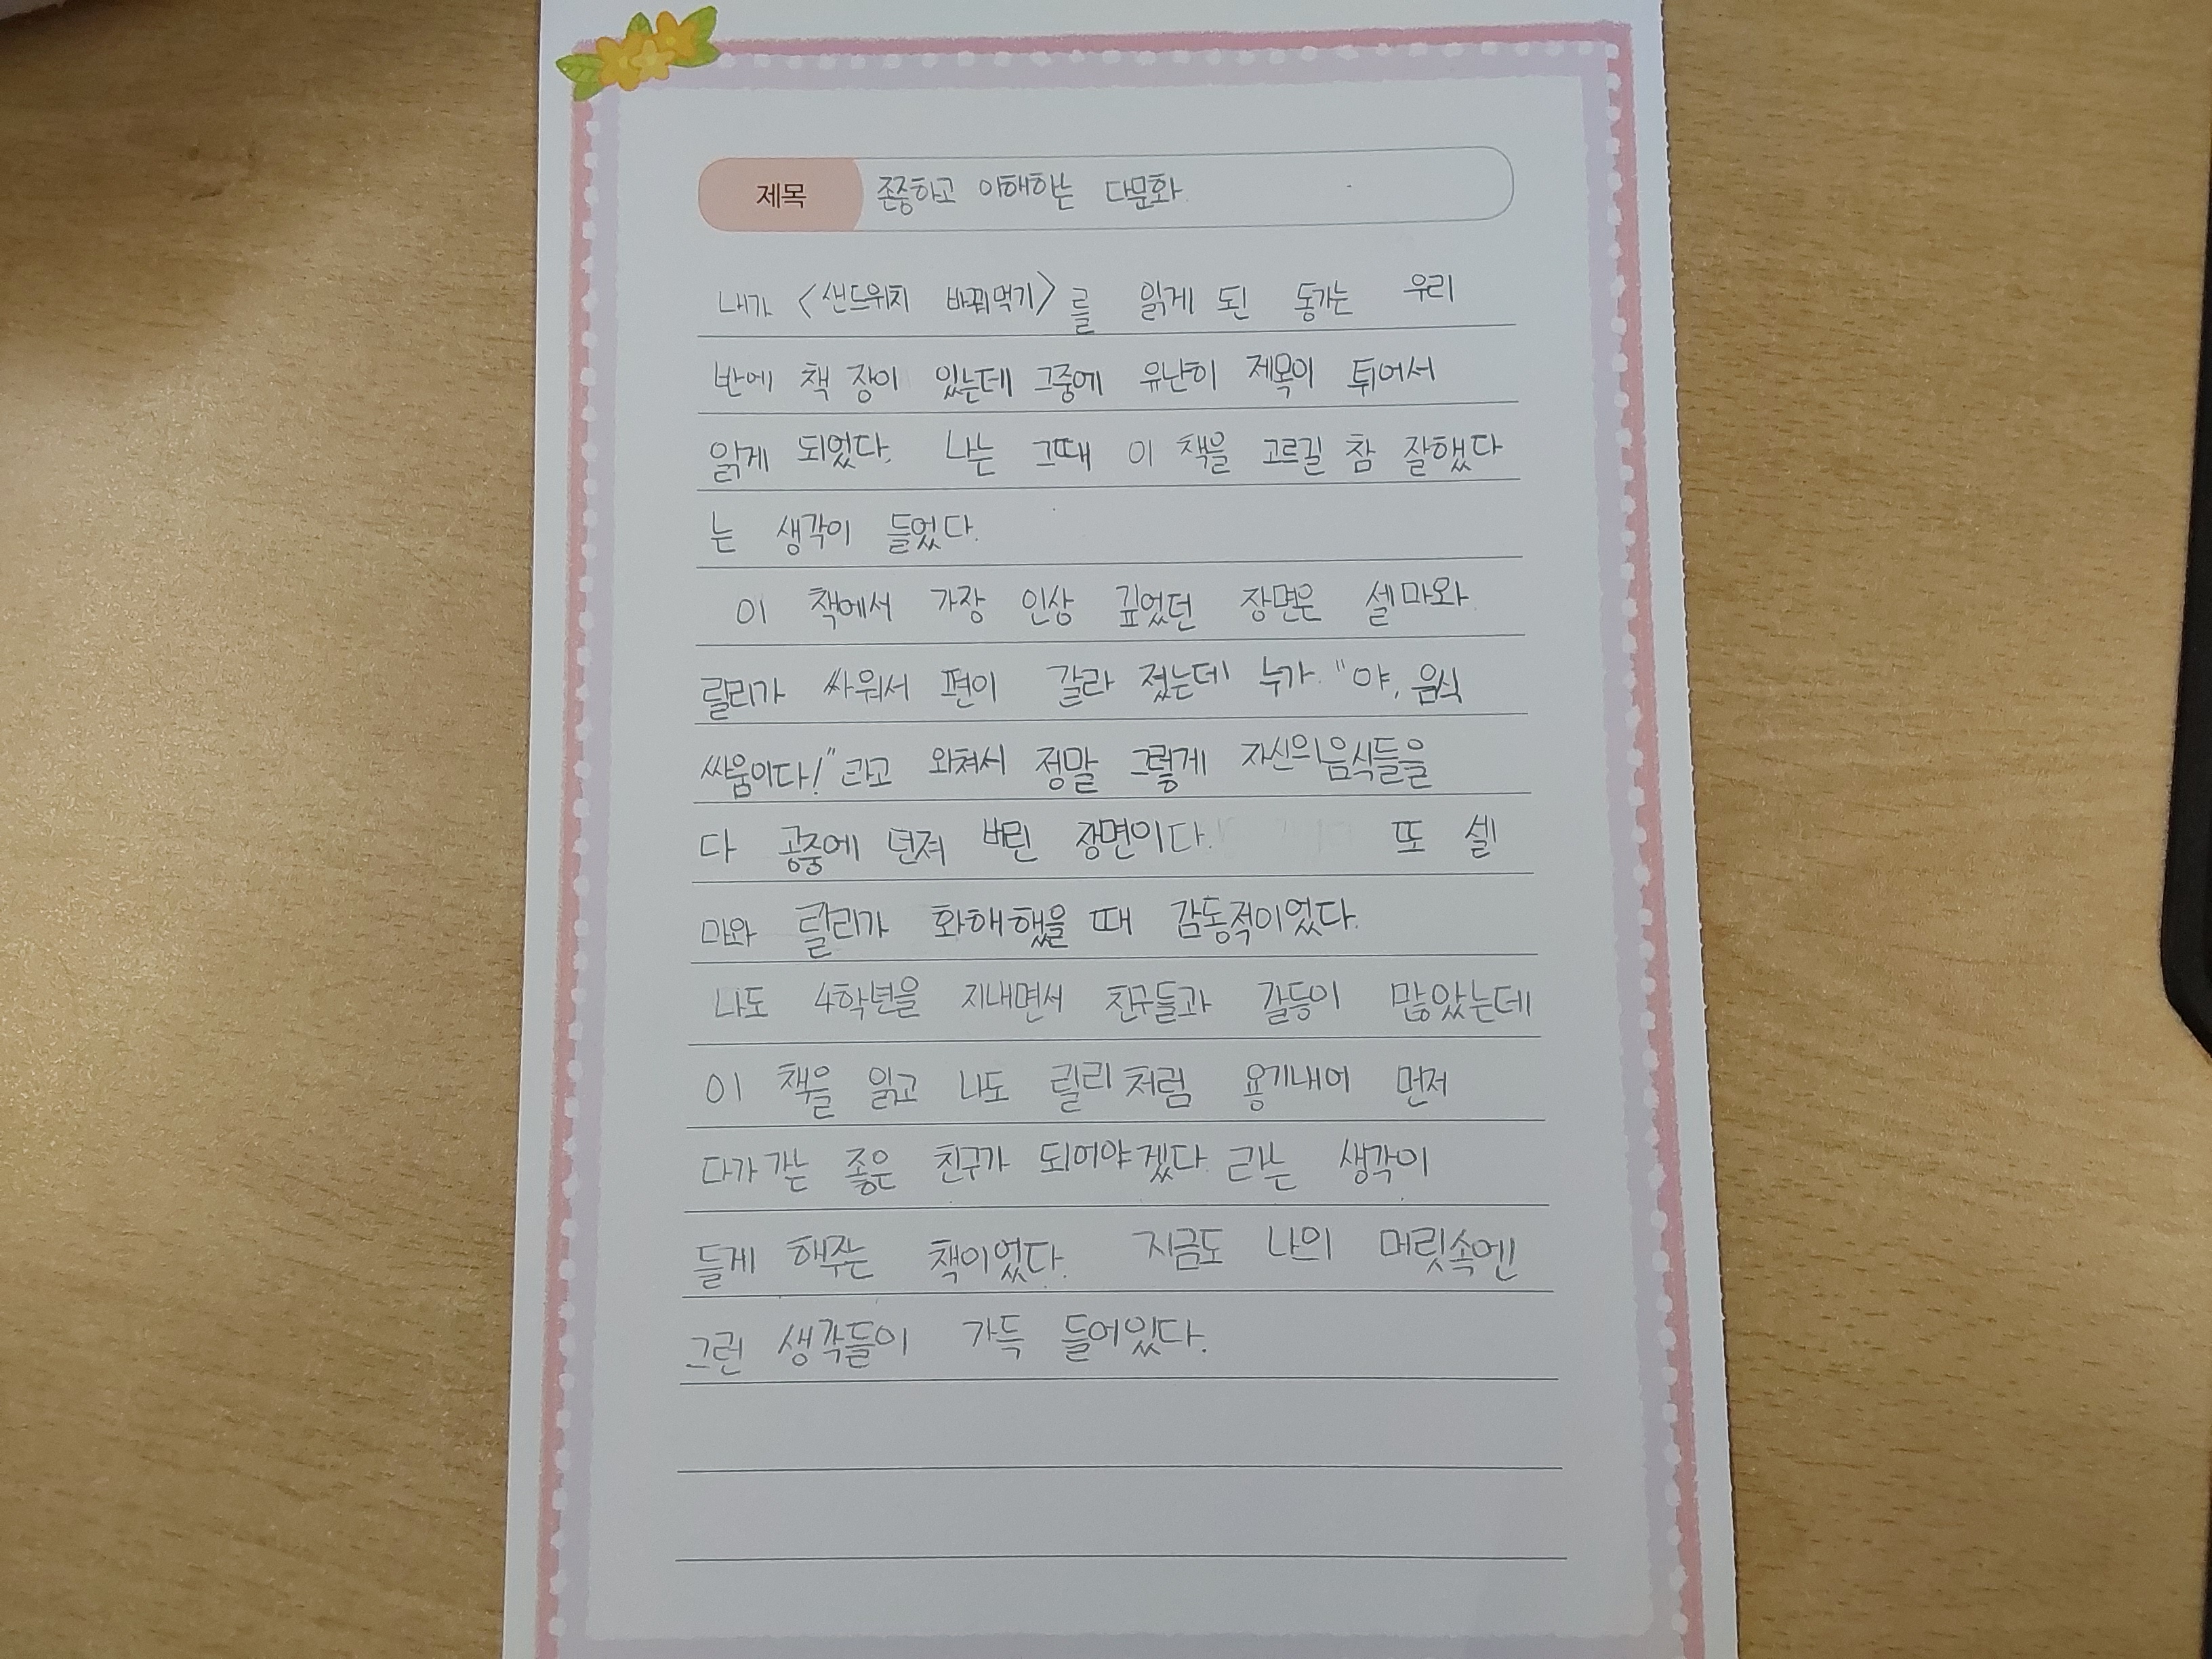 제목 존중하고 이해하는 다문화
내가 <샌드위치 바꿔먹기>를 읽게 된 동기는 우리
반에 책 장이 있는데 그중에 유난히 제목이 튀어서
읽게 되었다. 나는 그때 이 책을 고르길 참 잘했다
는 생각이 들었다.
이 책에서 가장 인상 깊었던 장면은 셀마와
릴리가 싸워서 편이 갈라 졌는데 누가 "야, 음식
싸움이다!"라고 외쳐서 정말 그렇게 자신의음식들을
다 공중에 던져 버린 장면이다. 또 셀
마와 릴리가 화해했을 때 감동적이었다.
나도 4학년을 지내면서 친구들과 갈등이 많았는데
이 책을 읽고 나도 릴리처럼 용기내어 먼저
다가가는 좋은 친구가 되어야겠다 라는 생각이
들게 해주는 책이었다. 지금도 나의 머릿속엔
그런 생각들이 가득 들어있다.